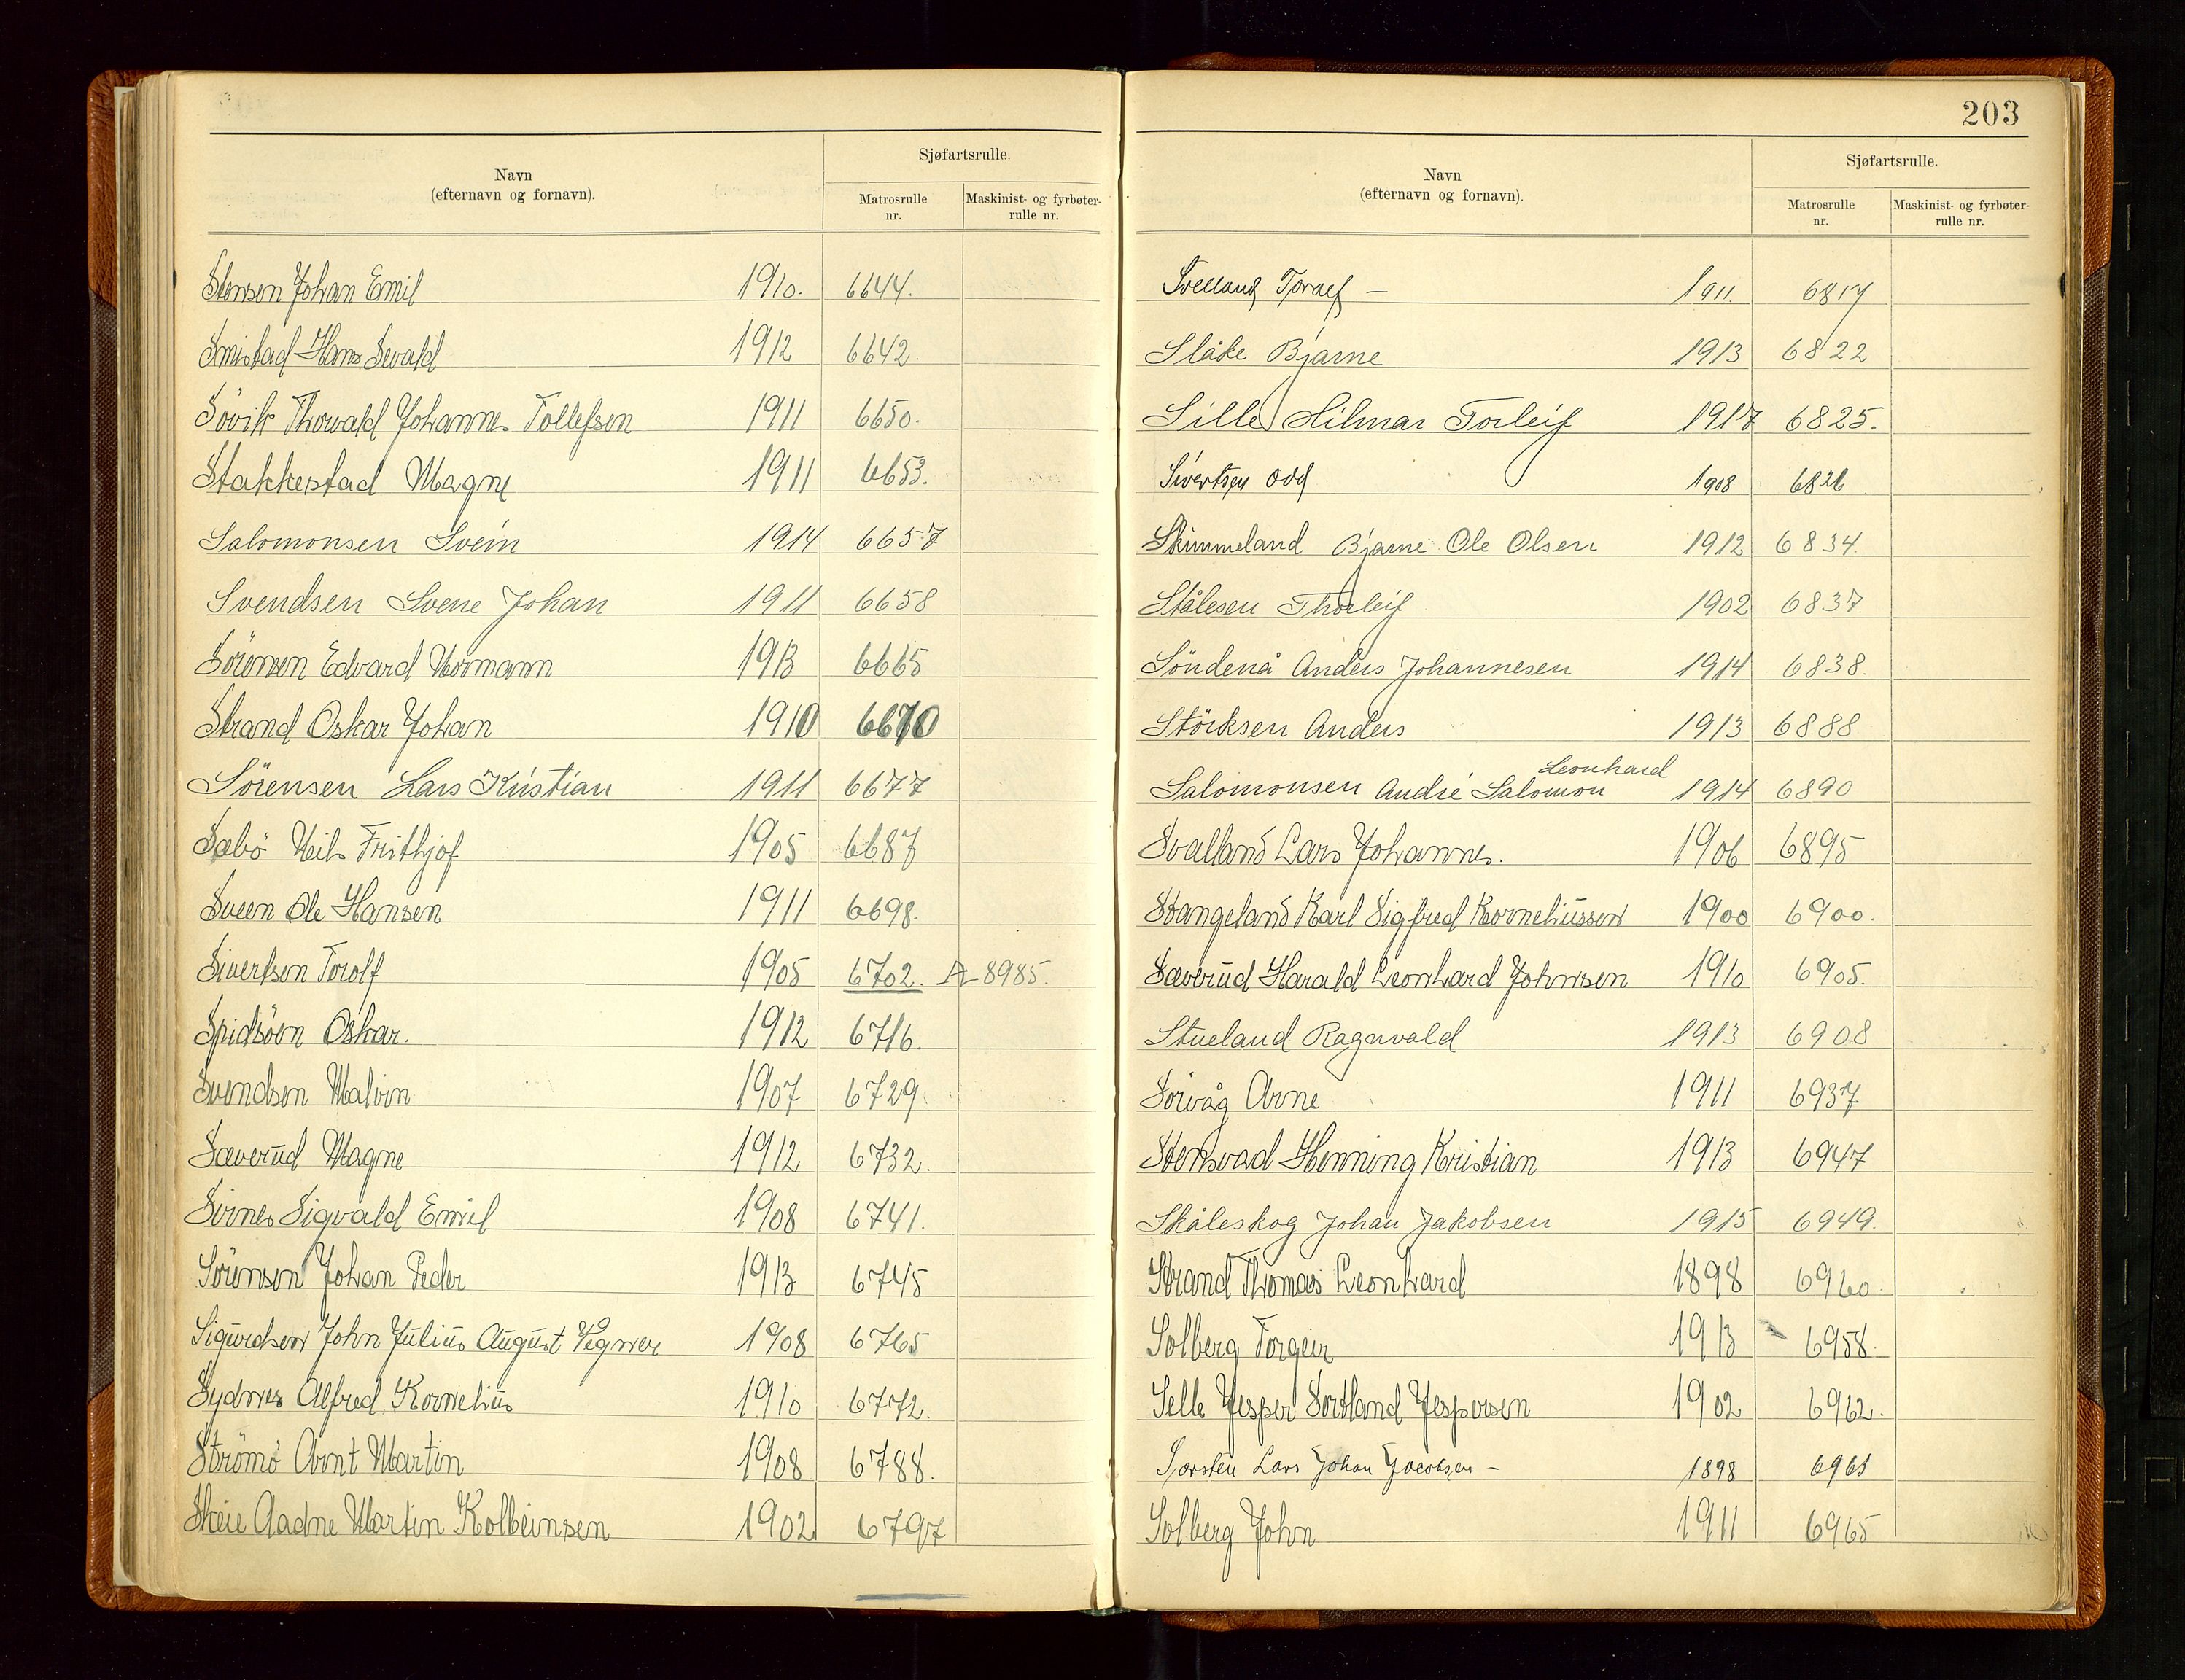 Navn
(efternavn og fornavn).
Sjøfartsrulle.
Matrosrulle
nr.
Maskinist- og fyrbøter-
rulle nr.
Stensen Johan Emil 1910. 6644.
Smistad Hans Sevald 1912 6642.
Sövik Thorvald Johannes Tollefsen 1911 6650.
Stakkestad Magne 1911 6653.
Salomonsen Svein 1914 6657
Svendsen Svene Johan 1911 6658
Sörensen Edvard Normann 1913 6665
Strand Oskar Johan 1910 6670
Sörensen Lars Kristian 1911 6677
Sæbö Nils Frithjof 1905 6687
Sveen Ole Hansen 1911 6698.
Sivertsen Torolf 1905 6702. A 8985.
Spidsöen Oskar. 1912 6716.
Svendsen Malvin 1907 6729.
Sæverud Magne 1912 6732.
Sirnes Sigvald Emil 1908 6741.
Sörensen Johan Peder 1913 6745
Sigurdsen John Julius August Vegner 1908 6765
Sydnes Alfred Kornelius 1910 6772.
Strömö Arnt Martin 1908 6788.
Skeie Aadne Martin Kolbeinsen 1902 6797
203
Navn
(efternavn og fornavn).
Sjøfartsrulle.
Matrosrulle
nr.
Maskinist- og fyrbøter-
rulle nr.
Toralf – 1911. 6817
Slåke Bjarne 1913 6822
Sille Hilmar Torleif 1917 6825.
Sivertsen Odd 1908 6826
Skimmeland Bjarne Ole Olsen 1912 6834
Stålesen Thorleif 1902 6837.
Söndenå Anders Johannesen 1914 6838.
Störksen Anders 1913 6888
Leonhard
Salomonsen André Salomon 1914 6890
Svalland Lars Johannes. 1906 6895
Stangeland Karl Sigfred Korneliussen 1900 6900.
Sæverud Harald Leonhard Johnsen 1910 6905.
Stueland Ragnvald 1913 6908
Sörvåg Arne 1911 6937
Stensvad Henning Kristian 1913 6947
Skåleskog Johan Jakobsen 1915 6949.
Strand Thomas Leonhard 1898 6960.
Solberg Torgeir 1913 6958.
Selle Jesper Sortland Jespersen 1902 6962.
Lars Johan Jacobsen – 1898 6963
Solberg John 1911 6965